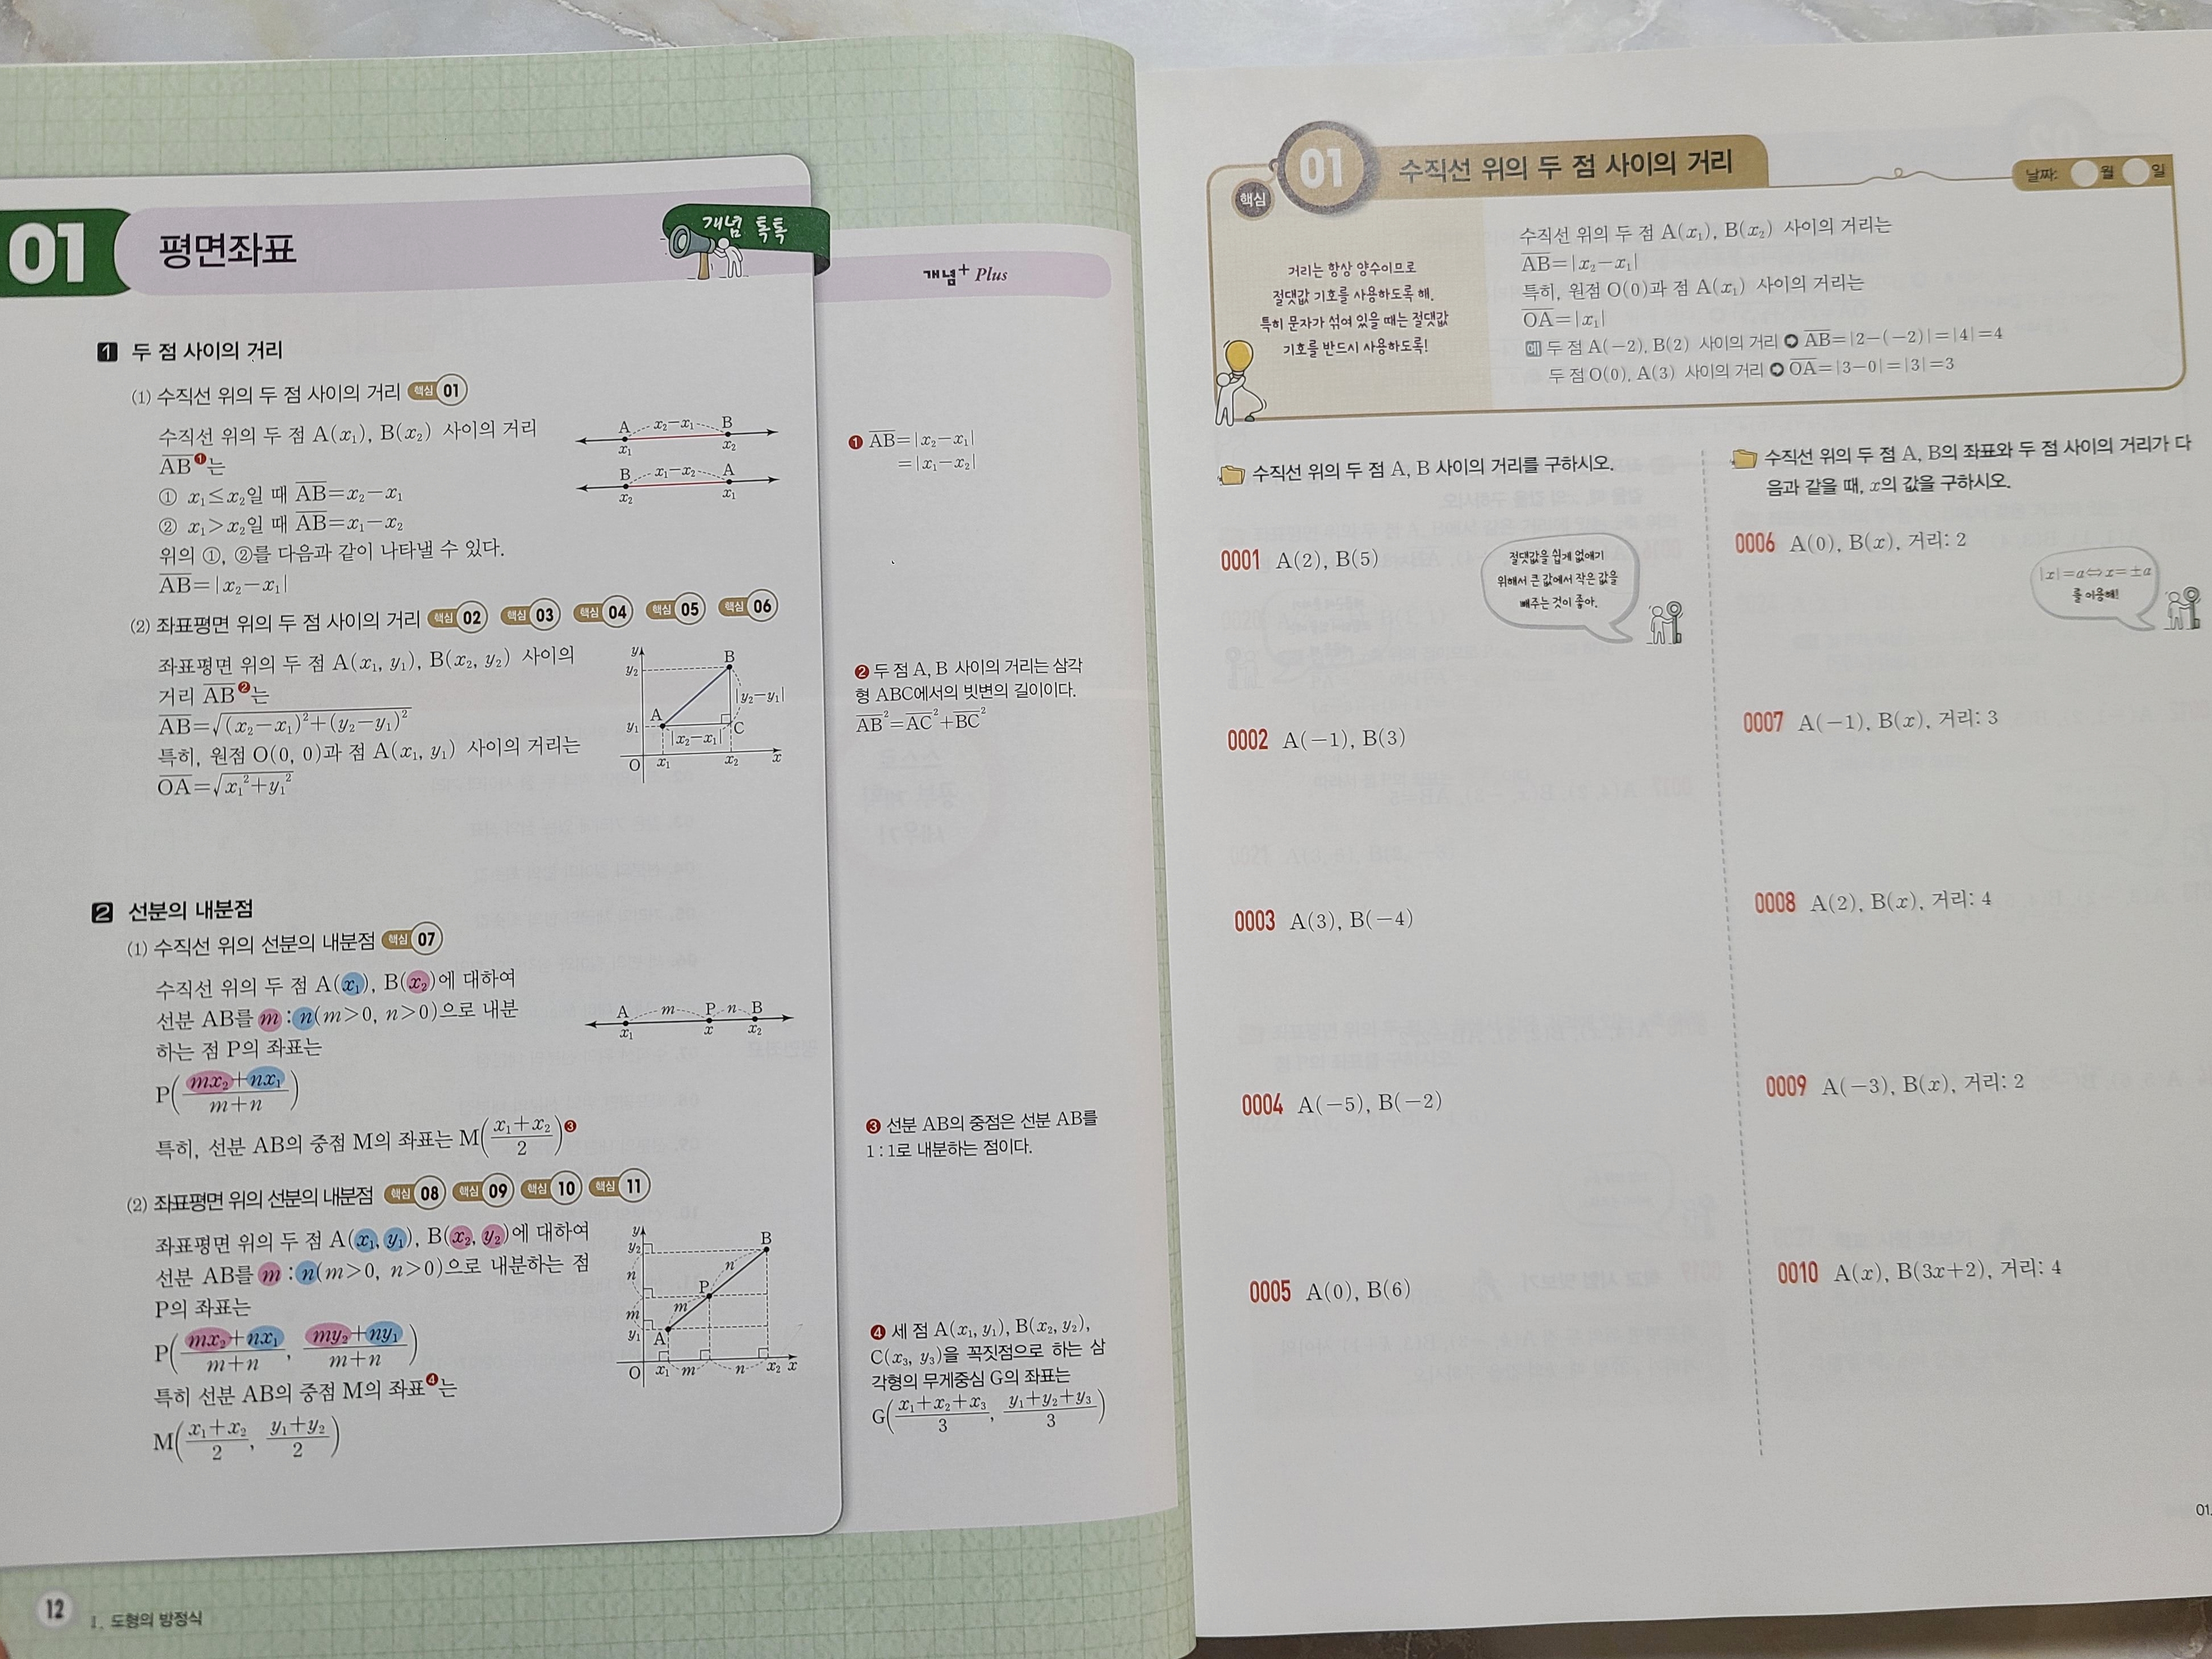 01
평면좌표
개념 톡톡
1 두 점 사이의 거리
(1) 수직선 위의 두 점 사이의 거리 핵심 01
수직선 위의 두 점 A(x₁), B(x₂) 사이의 거리
A̅B̅❶는
① x₁≤x₂일 때 A̅B̅=x₂−x₁
② x₁>x₂일 때 A̅B̅=x₁−x₂
위의 ①, ②를 다음과 같이 나타낼 수 있다.
A̅B̅=|x₂−x₁|
A x₂−x₁ B
x₁ x₂
B x₁−x₂ A
x₂ x₁
(2) 좌표평면 위의 두 점 사이의 거리 핵심 02 핵심 03 핵심 04 핵심 05 핵심 06
좌표평면 위의 두 점 A(x₁, y₁), B(x₂, y₂) 사이의
거리 A̅B̅❷는
A̅B̅=√((x₂−x₁)²+(y₂−y₁)²)
특히, 원점 O(0, 0)과 점 A(x₁, y₁) 사이의 거리는
O̅A̅=√(x₁²+y₁²)
y
y₂ B
|y₂−y₁|
y₁ A
|x₂−x₁| C
O x₁ x₂ x
2 선분의 내분점
(1) 수직선 위의 선분의 내분점 핵심 07
수직선 위의 두 점 A(x₁), B(x₂)에 대하여
선분 AB를 m : n(m>0, n>0)으로 내분
하는 점 P의 좌표는
P((mx₂+nx₁)/(m+n))
특히, 선분 AB의 중점 M의 좌표는 M((x₁+x₂)/2)❸
A m P n B
x₁ x x₂
(2) 좌표평면 위의 선분의 내분점 핵심 08 핵심 09 핵심 10 핵심 11
좌표평면 위의 두 점 A(x₁, y₁), B(x₂, y₂)에 대하여
선분 AB를 m : n(m>0, n>0)으로 내분하는 점
P의 좌표는
P((mx₂+nx₁)/(m+n), (my₂+ny₁)/(m+n))
특히 선분 AB의 중점 M의 좌표❹는
M((x₁+x₂)/2, (y₁+y₂)/2)
y
y₂ B
n n
P
m m
y₁ A
O x₁ m n x₂ x
12
Ⅰ. 도형의 방정식
개념+ Plus
❶ A̅B̅=|x₂−x₁|
=|x₁−x₂|
❷ 두 점 A, B 사이의 거리는 삼각
형 ABC에서의 빗변의 길이이다.
A̅B̅²=A̅C̅²+B̅C̅²
❸ 선분 AB의 중점은 선분 AB를
1 : 1로 내분하는 점이다.
❹ 세 점 A(x₁, y₁), B(x₂, y₂),
C(x₃, y₃)을 꼭짓점으로 하는 삼
각형의 무게중심 G의 좌표는
G((x₁+x₂+x₃)/3, (y₁+y₂+y₃)/3)
핵심 01 수직선 위의 두 점 사이의 거리
날짜: 월 일
거리는 항상 양수이므로
절댓값 기호를 사용하도록 해.
특히 문자가 섞여 있을 때는 절댓값
기호를 반드시 사용하도록!
수직선 위의 두 점 A(x₁), B(x₂) 사이의 거리는
A̅B̅=|x₂−x₁|
특히, 원점 O(0)과 점 A(x₁) 사이의 거리는
O̅A̅=|x₁|
예 두 점 A(−2), B(2) 사이의 거리 ➲ A̅B̅=|2−(−2)|=|4|=4
두 점 O(0), A(3) 사이의 거리 ➲ O̅A̅=|3−0|=|3|=3
수직선 위의 두 점 A, B 사이의 거리를 구하시오.
0001 A(2), B(5)
절댓값을 쉽게 없애기
위해서 큰 값에서 작은 값을
빼주는 것이 좋아.
0002 A(−1), B(3)
0003 A(3), B(−4)
0004 A(−5), B(−2)
0005 A(0), B(6)
수직선 위의 두 점 A, B의 좌표와 두 점 사이의 거리가 다
음과 같을 때, x의 값을 구하시오.
0006 A(0), B(x), 거리: 2
|x|=a⇔x=±a
를 이용해!
0007 A(−1), B(x), 거리: 3
0008 A(2), B(x), 거리: 4
0009 A(−3), B(x), 거리: 2
0010 A(x), B(3x+2), 거리: 4
01.